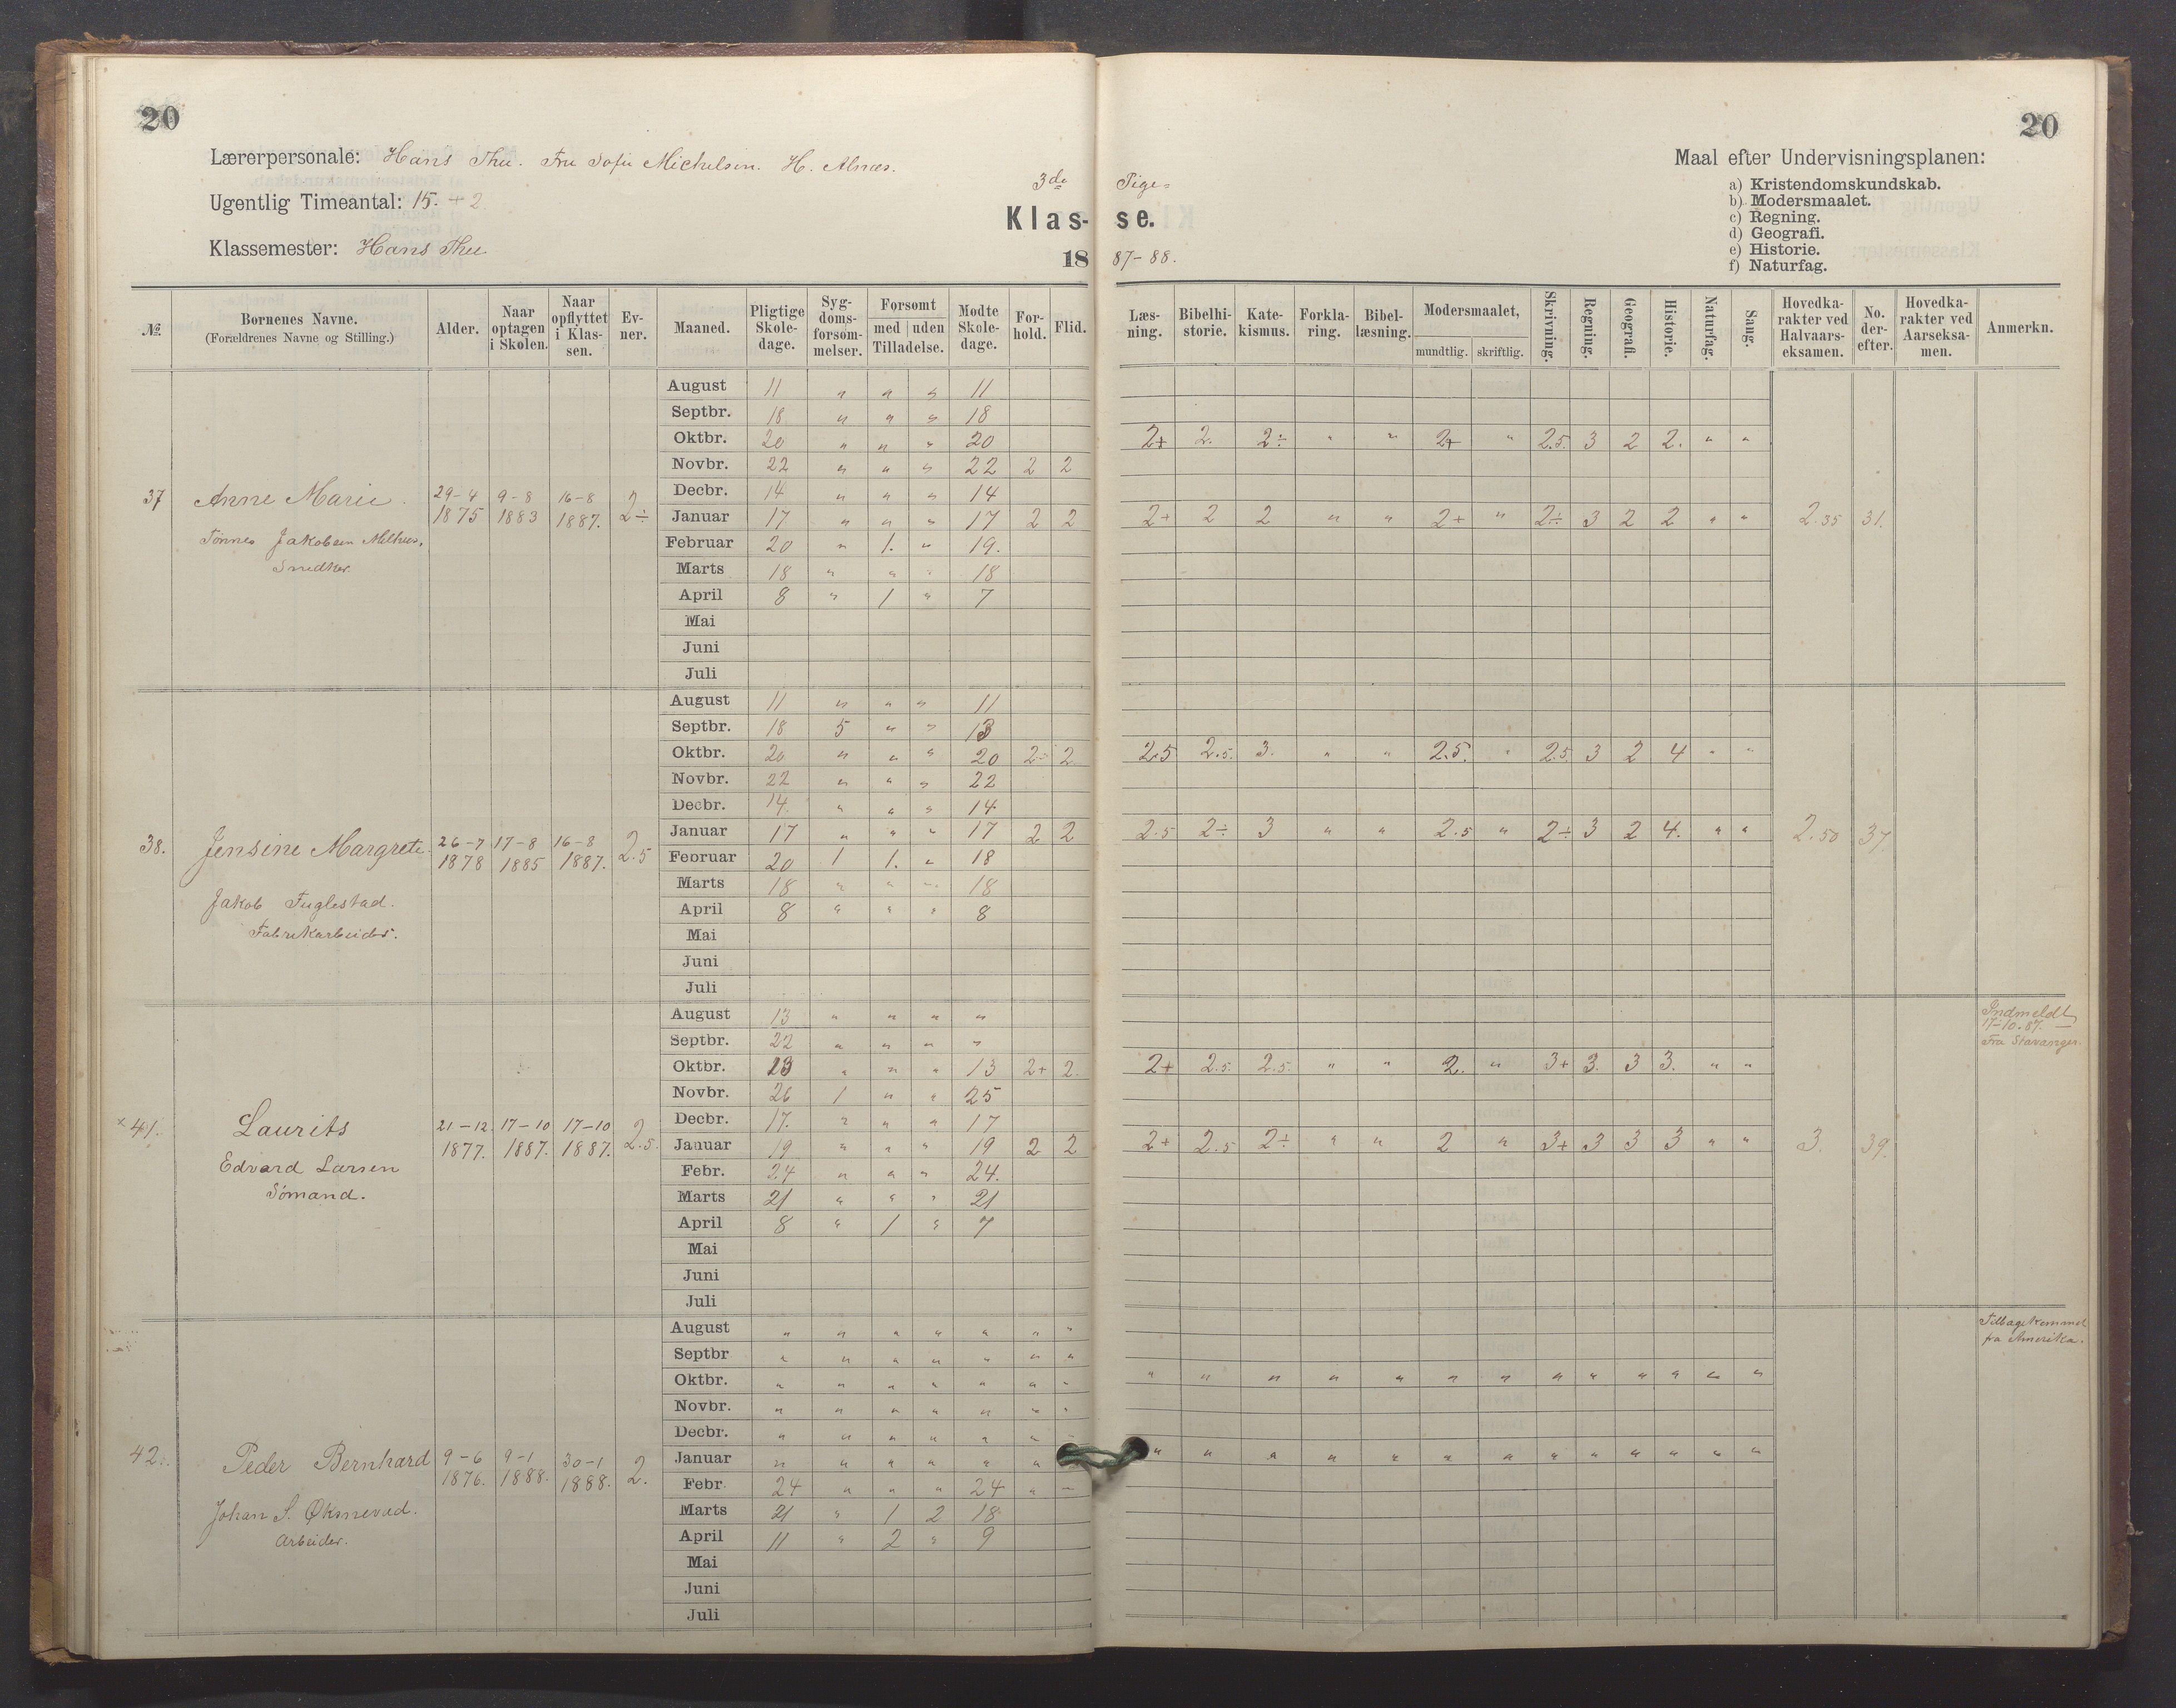 20
20
Lærerpersonale: Hans Thu. Fru Sofie Michelsen. H. Alnæs.
Ugentlig Timeantal: 15. + 2
Klassemester: Hans Thu
3de Pige-
Klas- se.
18 87-88.
Maal efter Undervisningsplanen:
a) Kristendomskundskab.
b) Modersmaalet.
c) Regning.
d) Geografi.
e) Historie.
f) Naturfag.
№ Børnenes Navne. (Forældrenes Navne og Stilling.) Alder. Naar optagen i Skolen. Naar opflyttet i Klassen. Evner. Maaned. Pligtige Skoledage. Sygdomsforsømmelser. Forsømt med uden Tilladelse. Mødte Skoledage. Forhold. Flid. Læsning. Bibelhistorie. Katekismus. Forklaring. Bibellæsning. Modersmaalet, mundtlig. skriftlig. Skrivning. Regning. Geografi. Historie. Naturfag. Sang. Hovedkarakter ved Halvaarseksamen. No. derefter. Hovedkarakter ved Aarseksamen. Anmerkn.
37 Anne Marie. 29-4 1875 9-8 1883 16-8 1887. 2÷
Tønnes Jakobsen
Snedker
August 11 " " " 11
Septbr. 18 " " " 18
Oktbr. 20 " " " 20 2+ 2. 2÷ " " 2+ " 2.5. 3 2 2. " "
Novbr. 22 " " " 22 2 2
Decbr. 14 " " " 14
Januar 17 " " " 17 2 2 2+ 2 2 " " 2+ " 2÷ 3 2 2 " " 2.35 31.
Februar 20 " 1. " 19.
Marts 18 " " " 18
April 8 " 1 " 7
Mai
Juni
Juli
38. Jensine Margrete. 26-7 1878 17-8 1885 16-8 1887. 2.5
Jakob Fuglestad.
Fabrikarbeider.
August 11 " " " 11
Septbr. 18 5 " " 13
Oktbr. 20 " " " 20 2÷ 2 2.5 2.5. 3. " " 2.5. " 2.5. 3 2 4 " "
Novbr. 22 " " " 22
Decbr. 14 " " " 14
Januar 17 " " " 17 2 2 2.5 2÷ 3 " " 2.5 " 2÷ 3 2 4. " " 2.50 37
Februar 20 1 1. " 18
Marts 18 " " " 18
April 8 " " " 8
Mai
Juni
Juli
Indmeldt
17-10.87. —
Fra Stavanger.
×41. Laurits 21-12. 1877. 17-10 1887. 17-10 1887. 2.5.
Edvard Larsen
Sømand.
August 13 " " " "
Septbr. 22 " " " "
Oktbr. 23 " " " 13 2+ 2. 2+ 2.5. 2.5. " " 2. " 3+ 3. 3 3. " "
Novbr. 26 1 " " 25
Decbr. 17. " " " 17
Januar 19 " " " 19 2 2 2+ 2.5 2÷ " " 2 " 3+ 3 3 3 " " 3. 39.
Febr. 24 " " " 24.
Marts 21 " " " 21
April 8 " 1 " 7
Mai
Juni
Juli
Tilbagekommed
fra Amerika.
42. Peder Bernhard 9-6 1876. 9-1 1888. 30-1 1888. 2.
Johan S. Øksnevad.
Arbeider.
August " " " " " " "
Septbr " " " " " " "
Oktbr. " " " " " " " " " " " " " " " " " " " "
Novbr. " " " " " " "
Decbr. " " " " " " "
Januar " " " " " " " " " " " " " " " " " " "
Febr. 24 " " " 24 " "
Marts 21 " 1 2 18
April 11 " 2 " 9
Mai
Juni
Juli